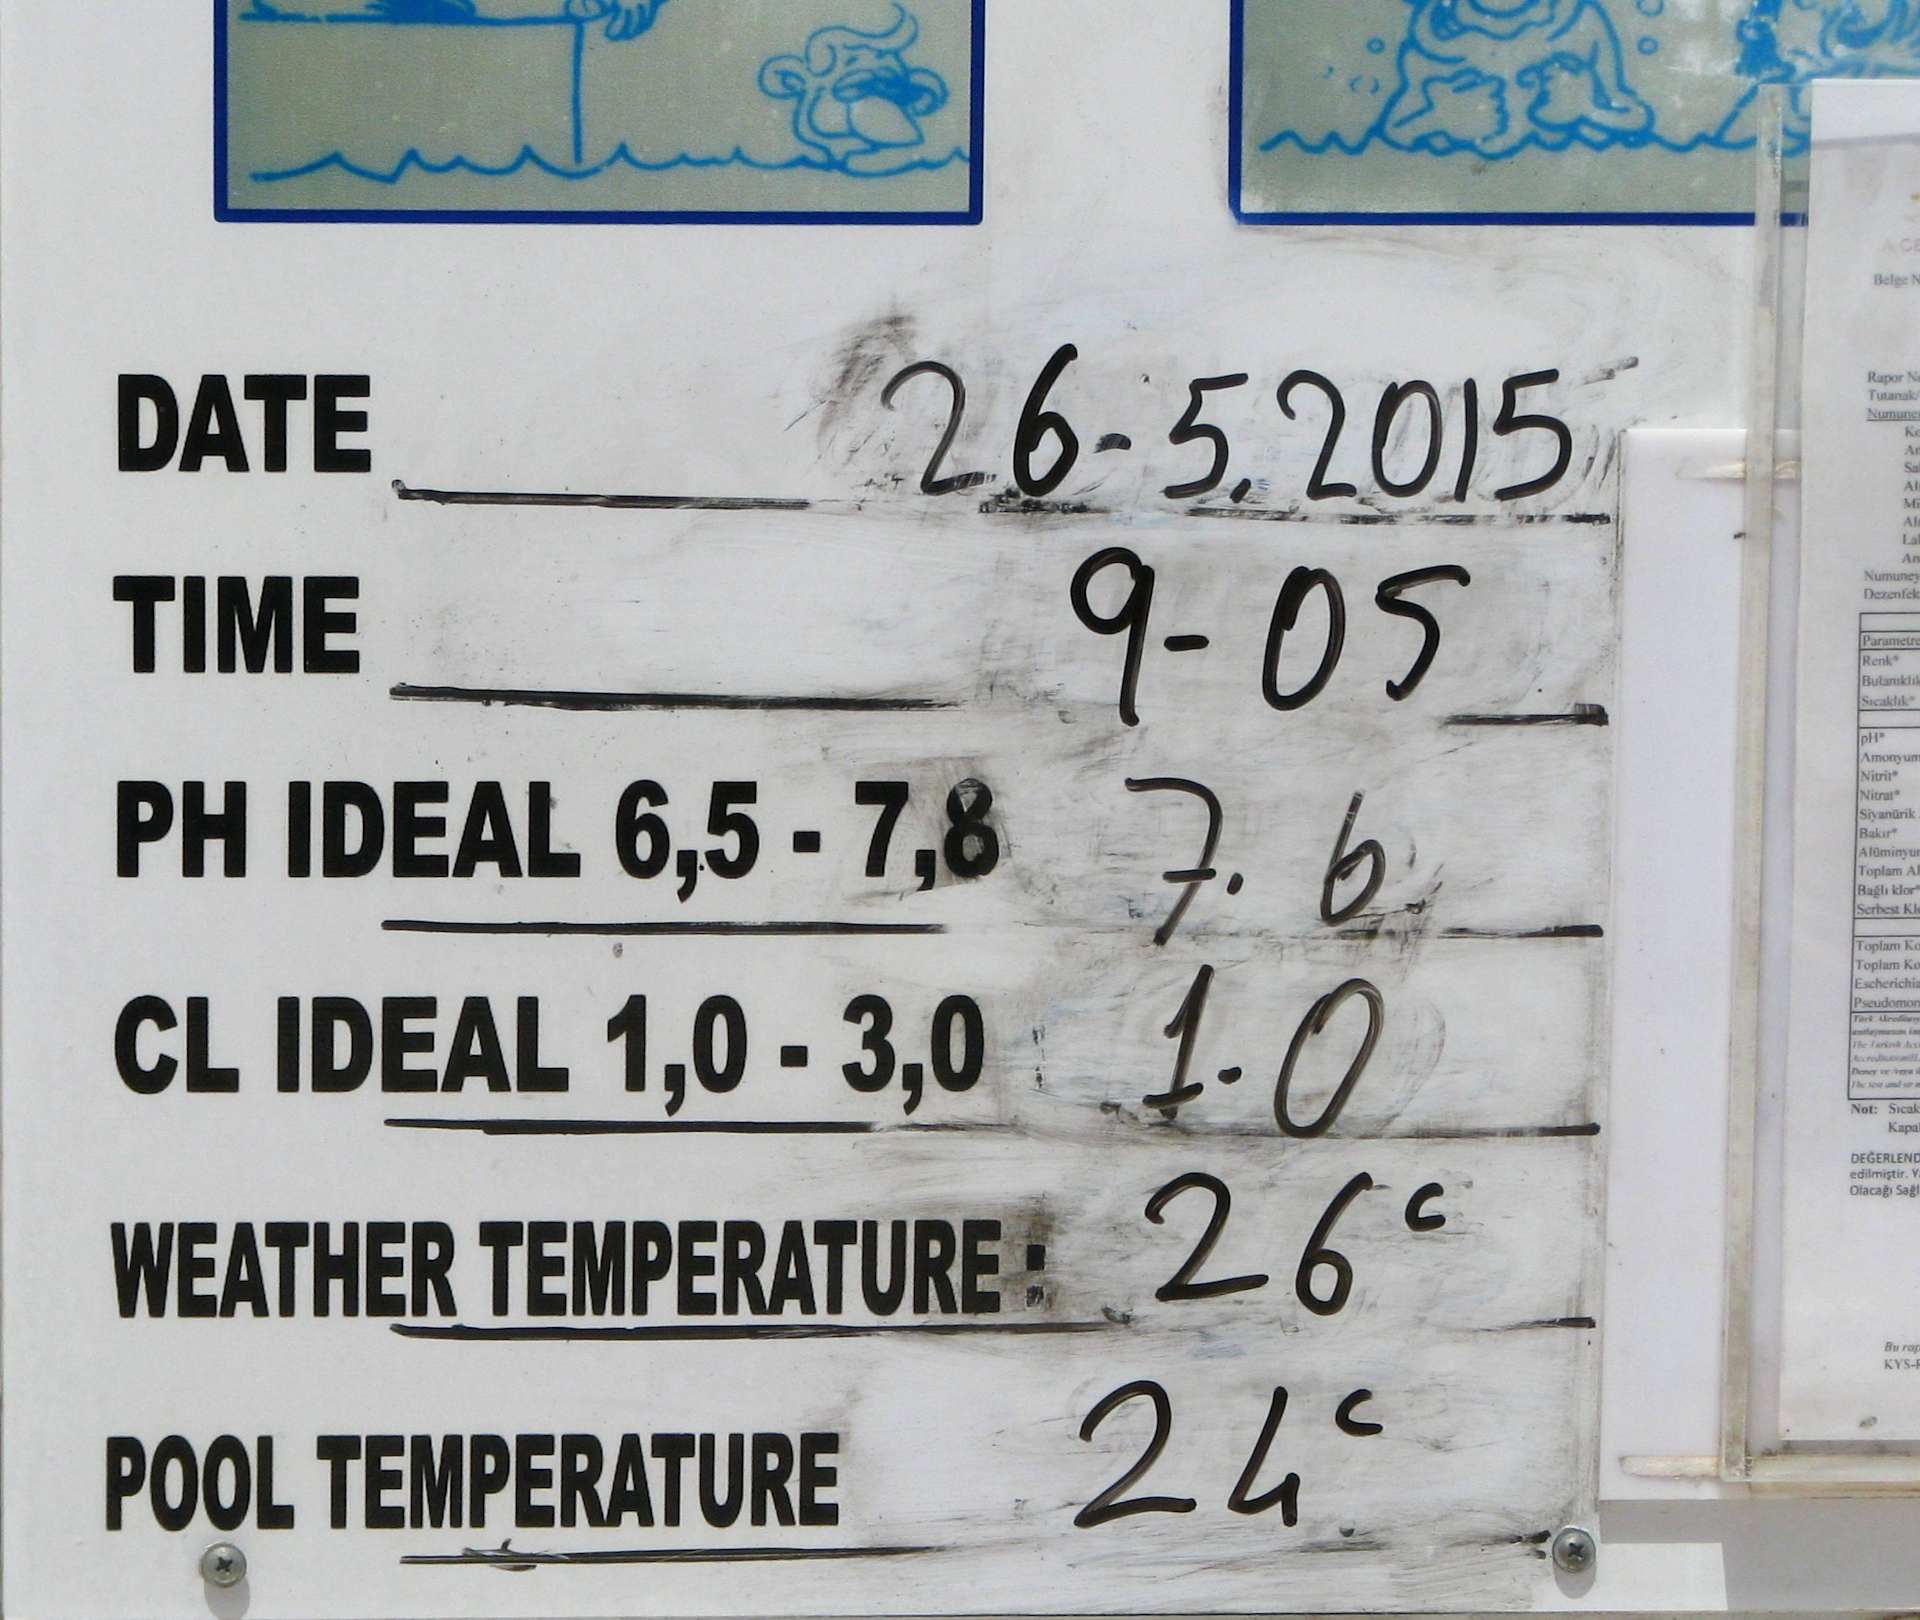 DATE 26-5.2015
TIME 9-05
PH IDEAL 6,5 - 7,8 7.6
CL IDEAL 1,0 - 3,0 1.0
WEATHER TEMPERATURE : 26c
POOL TEMPERATURE 24c
Belge N
Rapor N
Tutanak/
Numune
Numuney
Dezenfek
Parametre
Renk*
Bulanıklık
Sıcaklık*
pH*
Amonyum
Nitrit*
Nitrat*
Siyanürik
Bakır*
Alüminyum
Toplam Al
Bağlı klor*
Serbest Kl
Toplam Ko
Toplam Ko
Escherichia
Pseudomon
Not: Sıcak
Kapal
DEĞERLEND
edilmiştir. Y
Olacağı Sağl
Bu rap
KYS-F